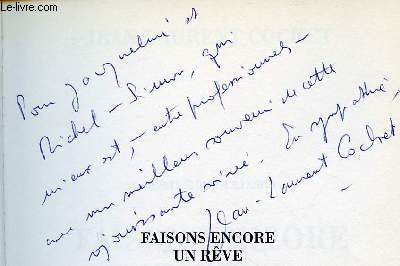 © Le-livre.com
Pour Jacqueline et
Michel-Simon, qui
mieux est, - entre professionnels -
avec mon meilleur souvenir de cette
réjouissante soirée. En sympathie,
Jean-Laurent Cochet
FAISONS ENCORE
UN RÊVE